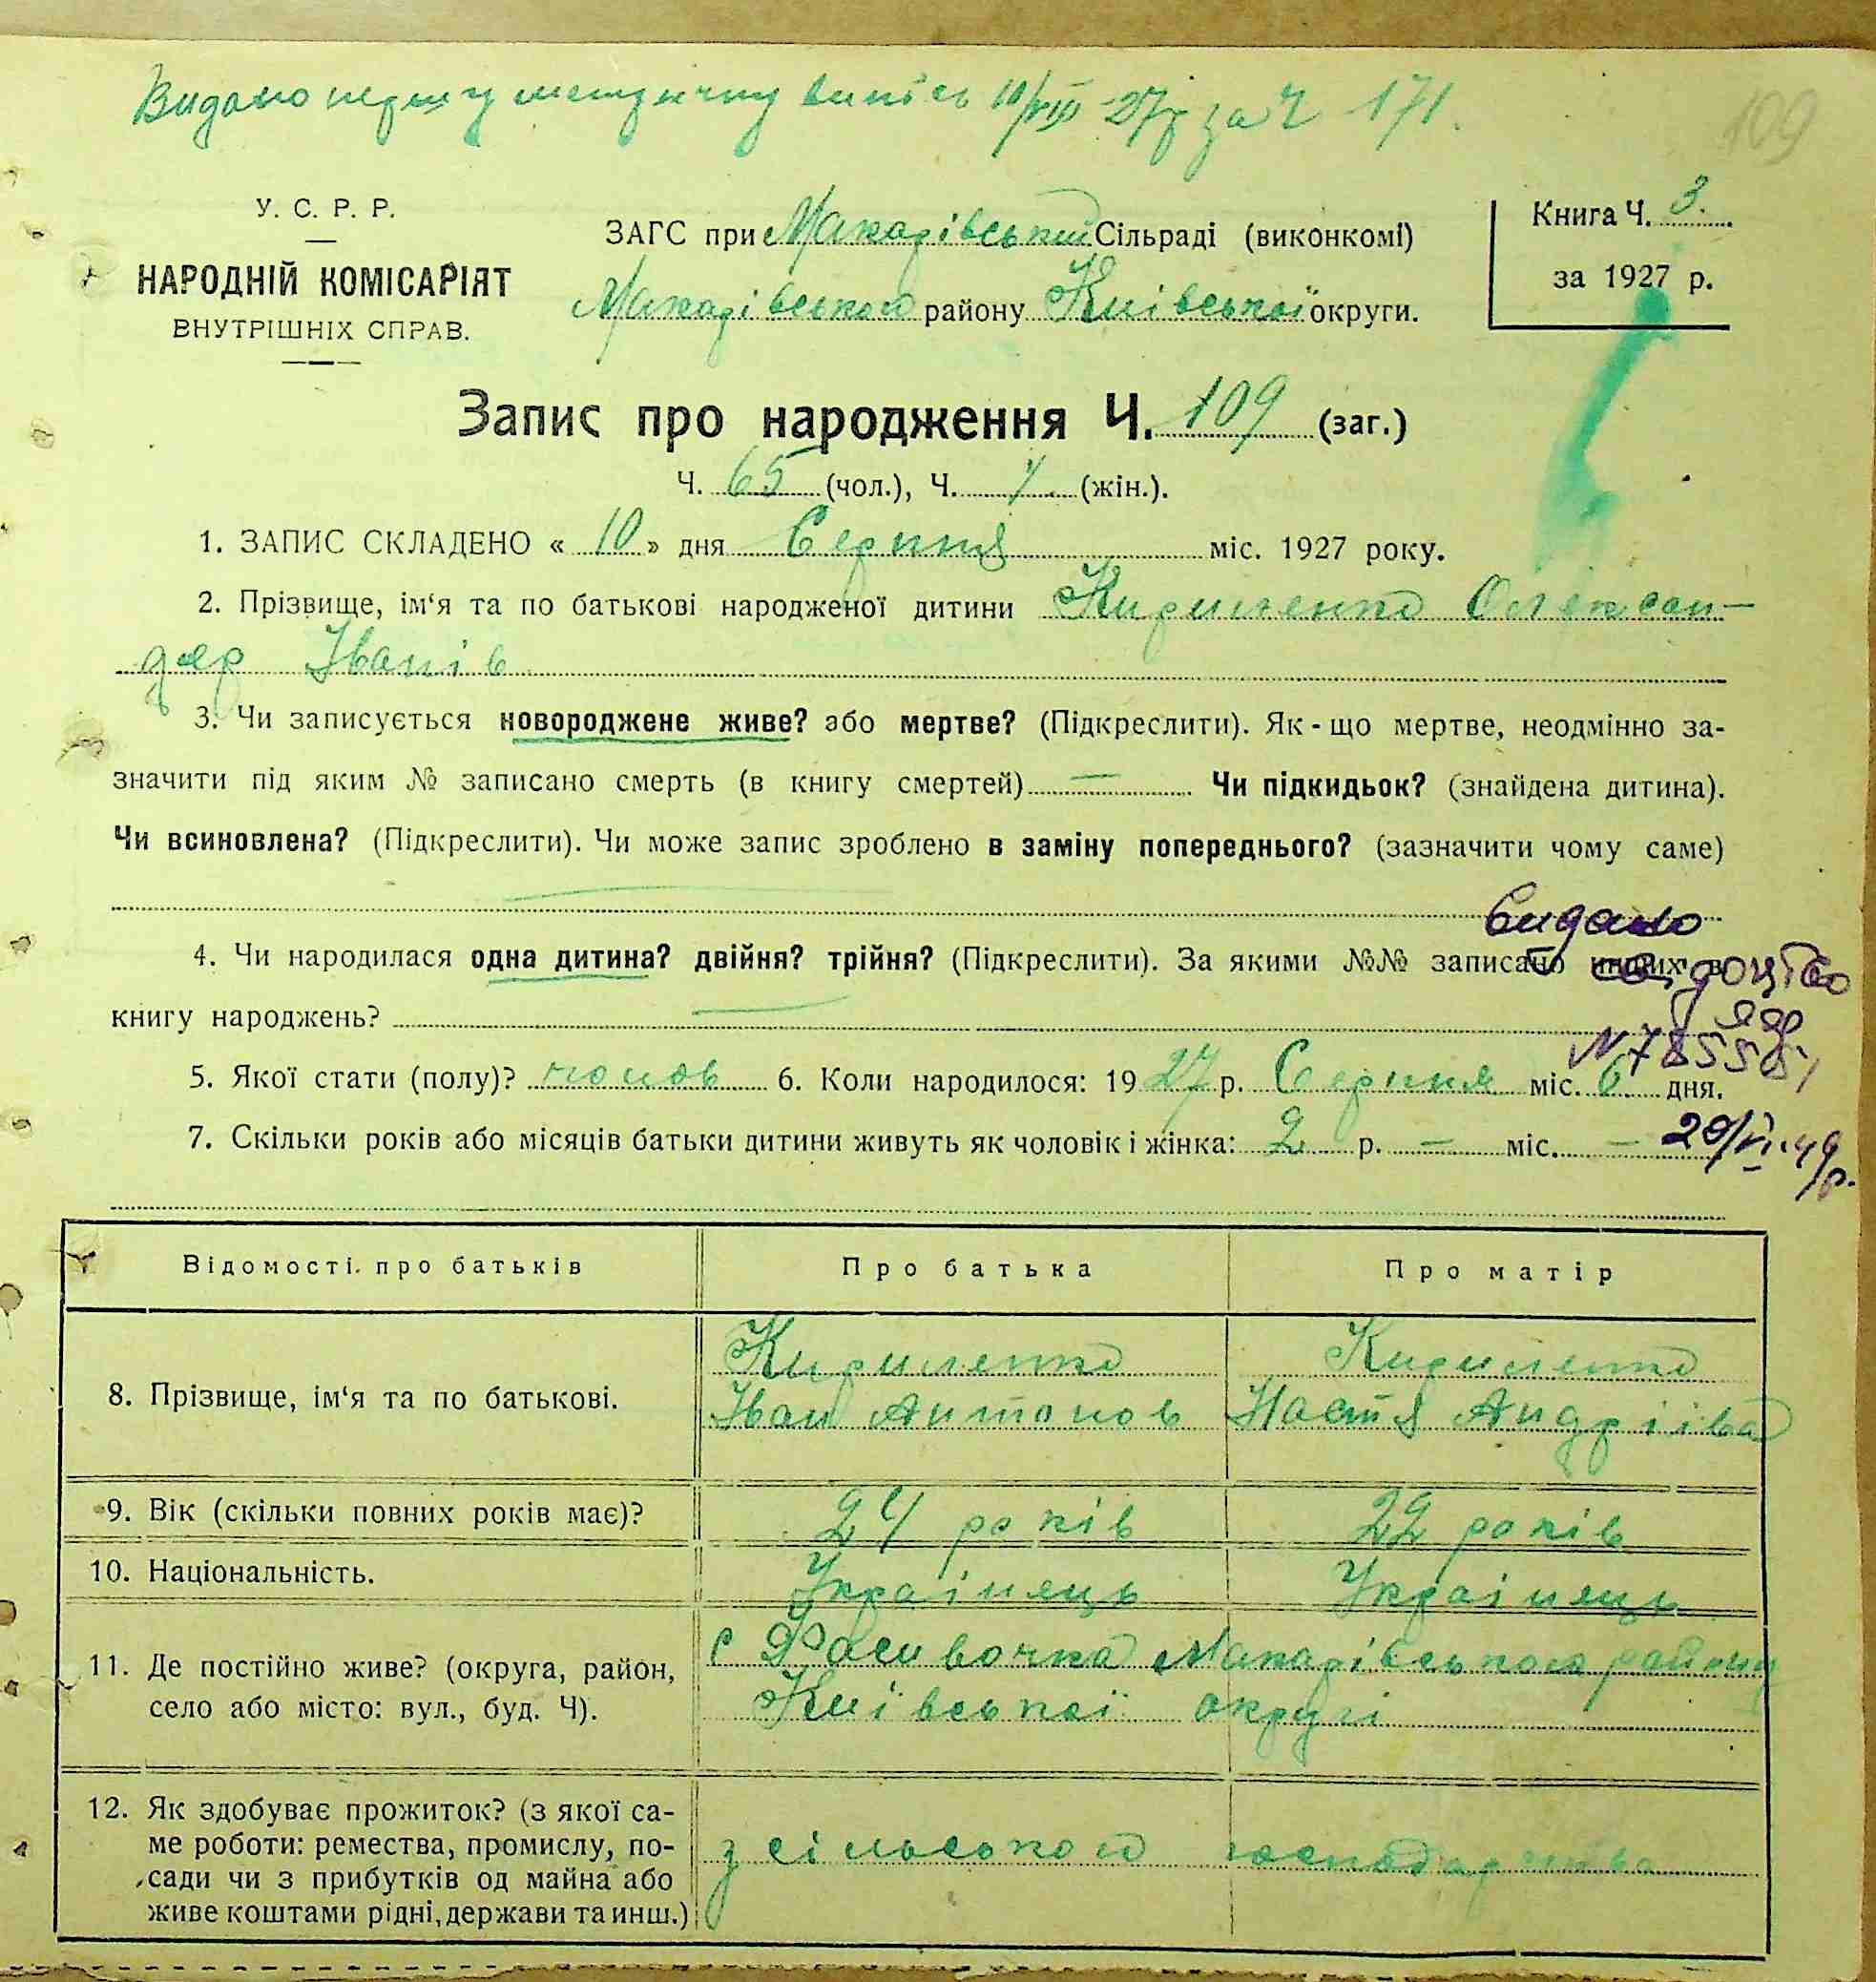 Видано першу метричну випись 10/VIII 27р за Ч 171.
109
У. С. Р. Р.
НАРОДНІЙ КОМІСАРІЯТ
ВНУТРІШНІХ СПРАВ.
ЗАГС при Макарівський Сільраді (виконкомі)
Макарівського району Київської округи.
Книга Ч. 3.
за 1927 р.
Запис про народження Ч. 109 (заг.)
Ч. 65 (чол.), Ч. (жін.).
1. ЗАПИС СКЛАДЕНО « 10 » дня Серпня міс. 1927 року.
2. Прізвище, ім‘я та по батькові народженої дитини Кириленко Олександер Іванів
3. Чи записується новороджене живе? або мертве? (Підкреслити). Як-що мертве, неодмінно за-
значити під яким № записано смерть (в книгу смертей) — Чи підкидьок? (знайдена дитина).
Чи всиновлена? (Підкреслити). Чи може запис зроблено в заміну попереднього? (зазначити чому саме)
Видано
4. Чи народилася одна дитина? двійня? трійня? (Підкреслити). За якими №№ записано инших в
книгу народжень? —
5. Якої стати (полу)? чолов 6. Коли народилося: 1927 р. Серпня міс. 6 дня.
7. Скільки років або місяців батьки дитини живуть як чоловік і жінка: 2 р. — міс. —
20/VI.49р.
Відомості про батьків Про батька Про матір
8. Прізвище, ім‘я та по батькові.
Кириленко Кириленко
Іван Антонов Настя Андріїва
9. Вік (скільки повних років має)? 24 років 22 років
10. Національність. Українець Українець
11. Де постійно живе? (округа, район,
село або місто: вул., буд. Ч).
с Фасивочка Макарівського району
Київської округі
12. Як здобуває прожиток? (з якої са-
ме роботи: ремества, промислу, по-
сади чи з прибутків од майна або
живе коштами рідні, держави та инш.)
з сільського господарства